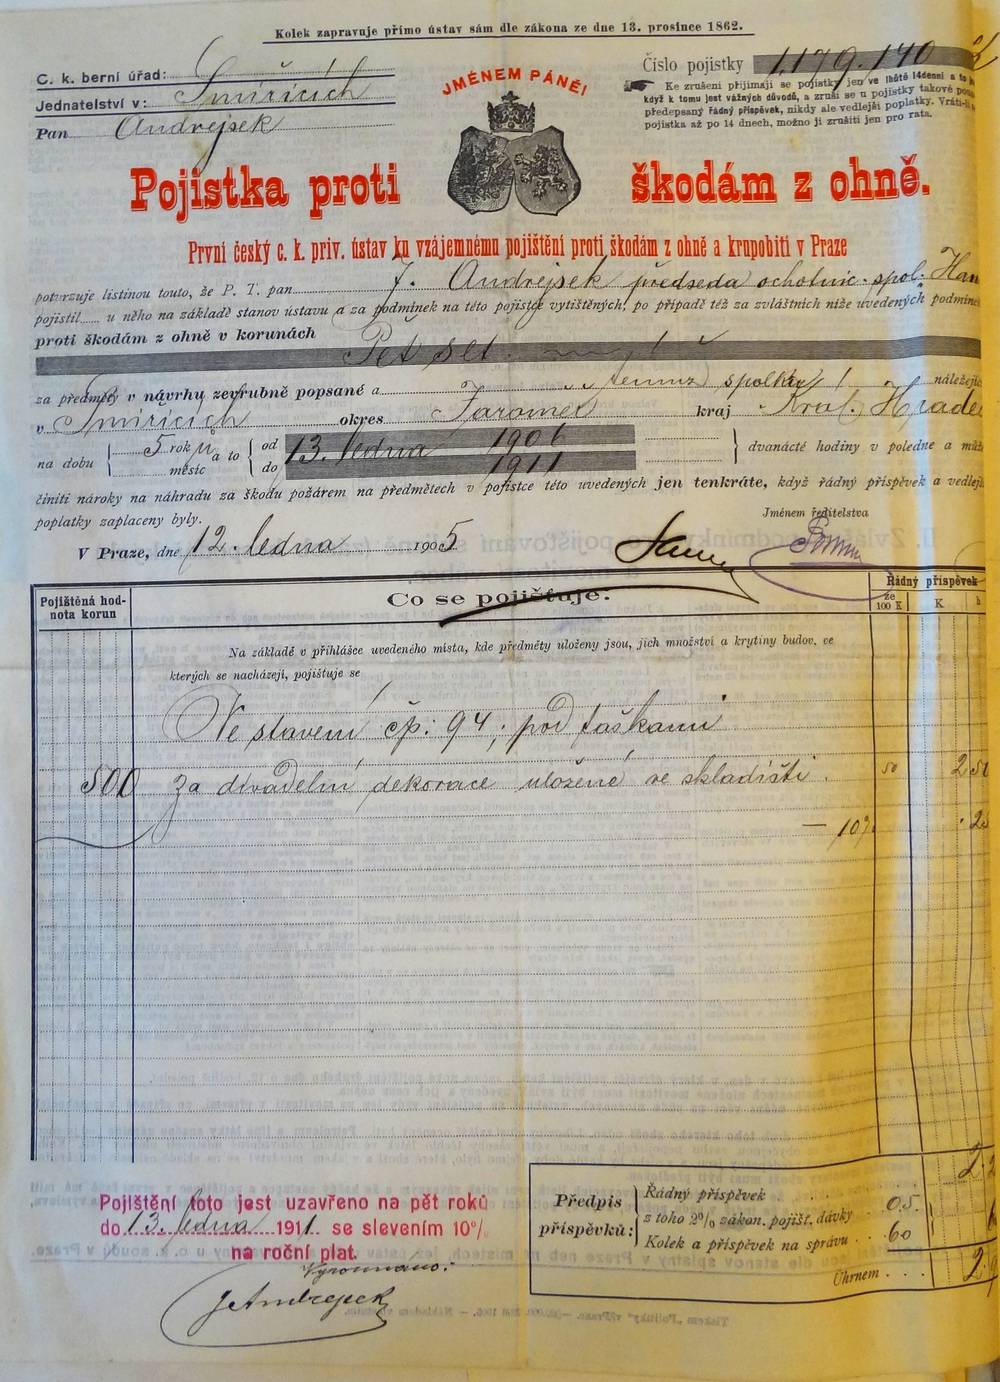 Kolek zapravuje přímo ústav sám dle zákona ze dne 13. prosince 1862.
C. k. berní úřad:
Jednatelství v: Smiřicích
Pan Andrejsek
JMÉNEM PÁNĚ!
Číslo pojistky 1,179.140
Ke zrušení přijímají se pojistky jen ve lhůtě 14denní a to
když k tomu jest vážných důvodů, a zruší se u pojistky takové
předepsaný řádný příspěvek, nikdy ale vedlejší poplatky. Vrátí-li
pojistka až po 14 dnech, možno ji zrušiti jen pro rata.
Pojistka proti škodám z ohně.
První český c. k. priv. ústav ku vzájemnému pojištění proti škodám z ohně a krupobití v Praze
potvrzuje listinou touto, že P. T. pan J. Andrejsek předseda ochotnic. spol.
pojistil u něho na základě stanov ústavu a za podmínek na této pojistce vytištěných, po případě též za zvláštních níže uvedených podmínek
proti škodám z ohně v korunách
Pět set
za předměty v návrhu zevrubně popsané a temuž spolku náležející
v Smiřicích okres Jaroměř kraj Král. Hradec
na dobu 5 roků a to od 13. ledna 1906 dvanácté hodiny v poledne a může
měsíc do 1911
činiti nároky na náhradu za škodu požárem na předmětech v pojistce této uvedených jen tenkráte, když řádný příspěvek a vedlejší
poplatky zaplaceny byly.
Jménem ředitelstva
V Praze, dne 12. ledna 1905
Pojištěná hodnota korun
Co se pojišťuje.
Řádný příspěvek
ze 100 K
K
h
Na základě v přihlášce uvedeného místa, kde předměty uloženy jsou, jich množství a krytiny budov, ve
kterých se nacházejí, pojišťuje se
Ve stavení čp: 94, pod taškami
500 Za divadelní dekorace uložené ve skladišti. 50 2 50
— 10%
Pojištění toto jest uzavřeno na pět roků
do 13. ledna 1911 se slevením 10%
na roční plat.
Vyrovnáno:
JAndrejsek
Předpis příspěvků:
Řádný příspěvek
z toho 2% zákon. pojišť. dávky 05.
Kolek a příspěvek na správu 60
Úhrnem